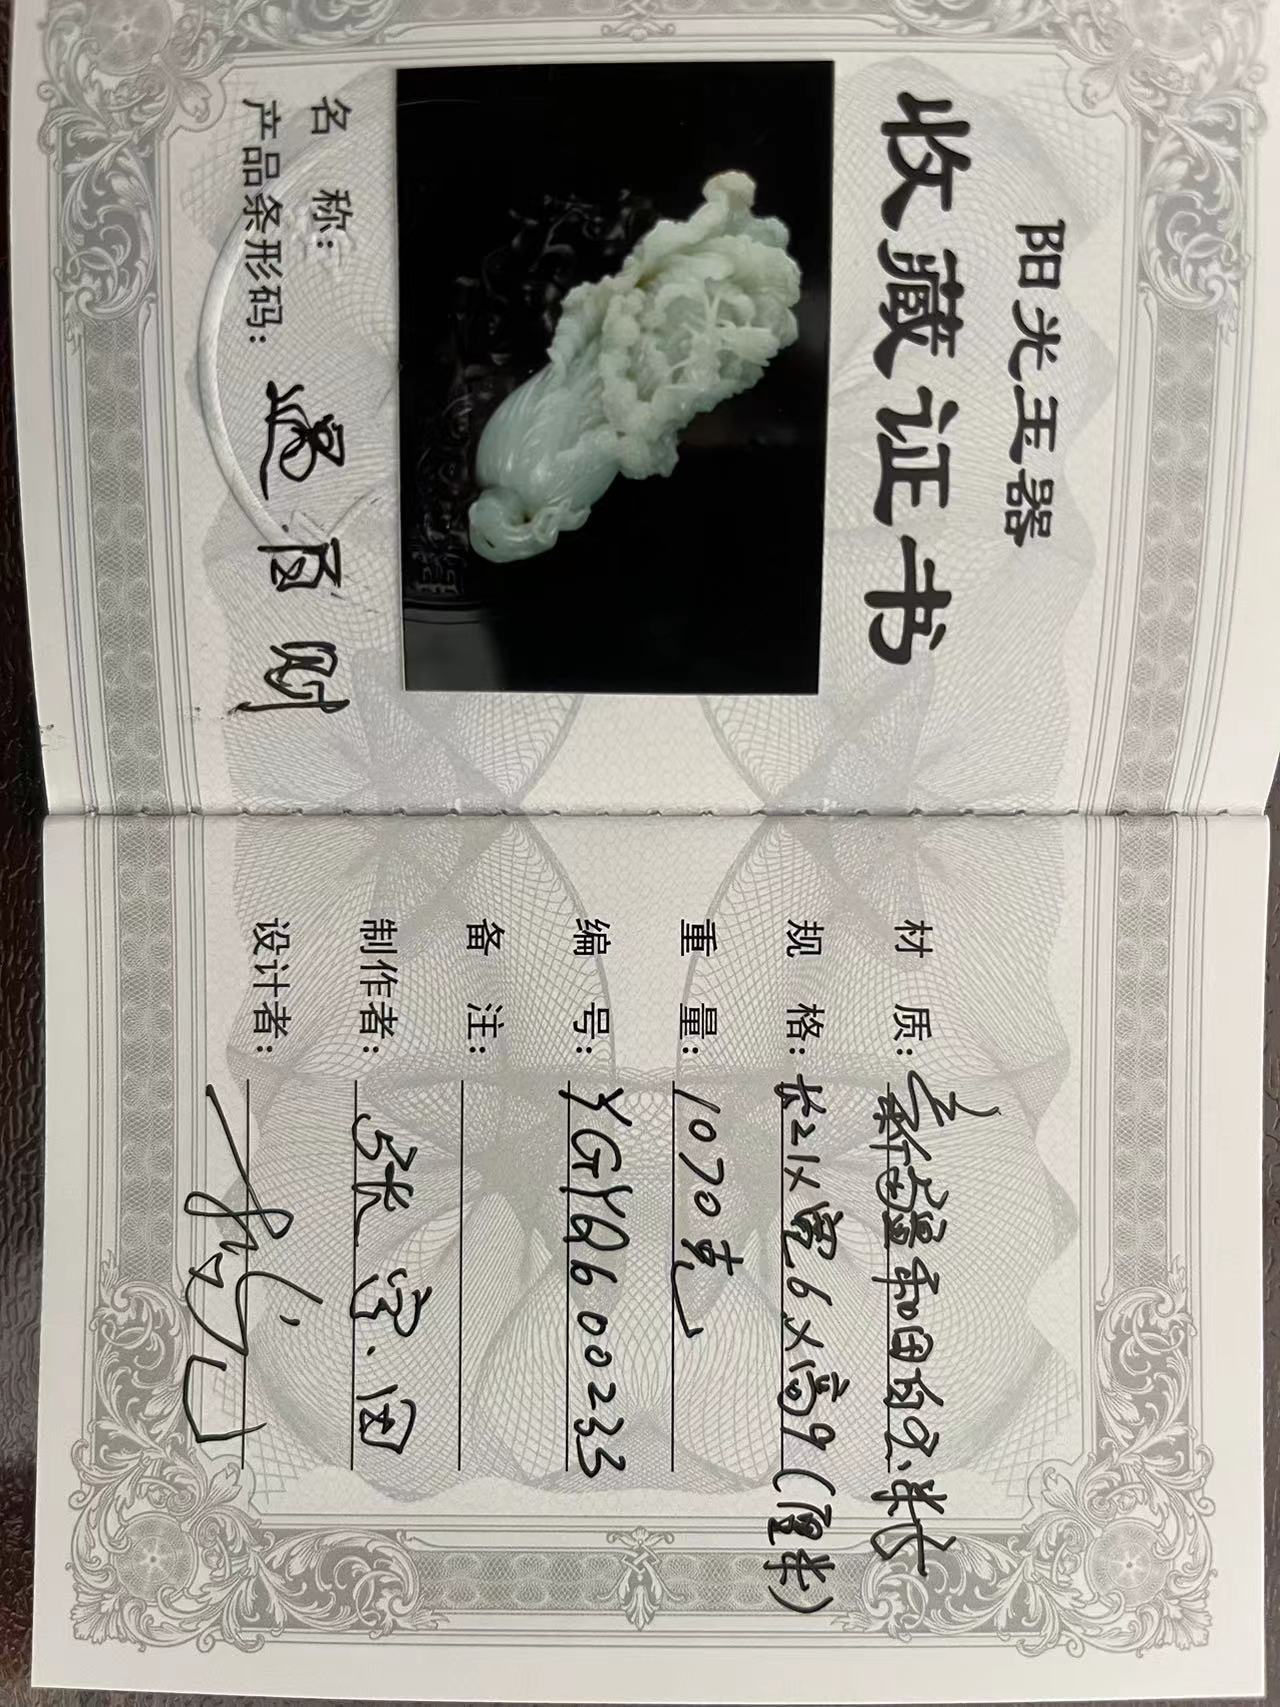 阳光玉器
收藏证书
名称: 遇百财
产品条形码:
材质: 新疆和田白玉籽
规格: 长21×宽6×高9(厘米)
重量: 1070克
编号: YGYQ600233
备注:
制作者: 张宝国
设计者: